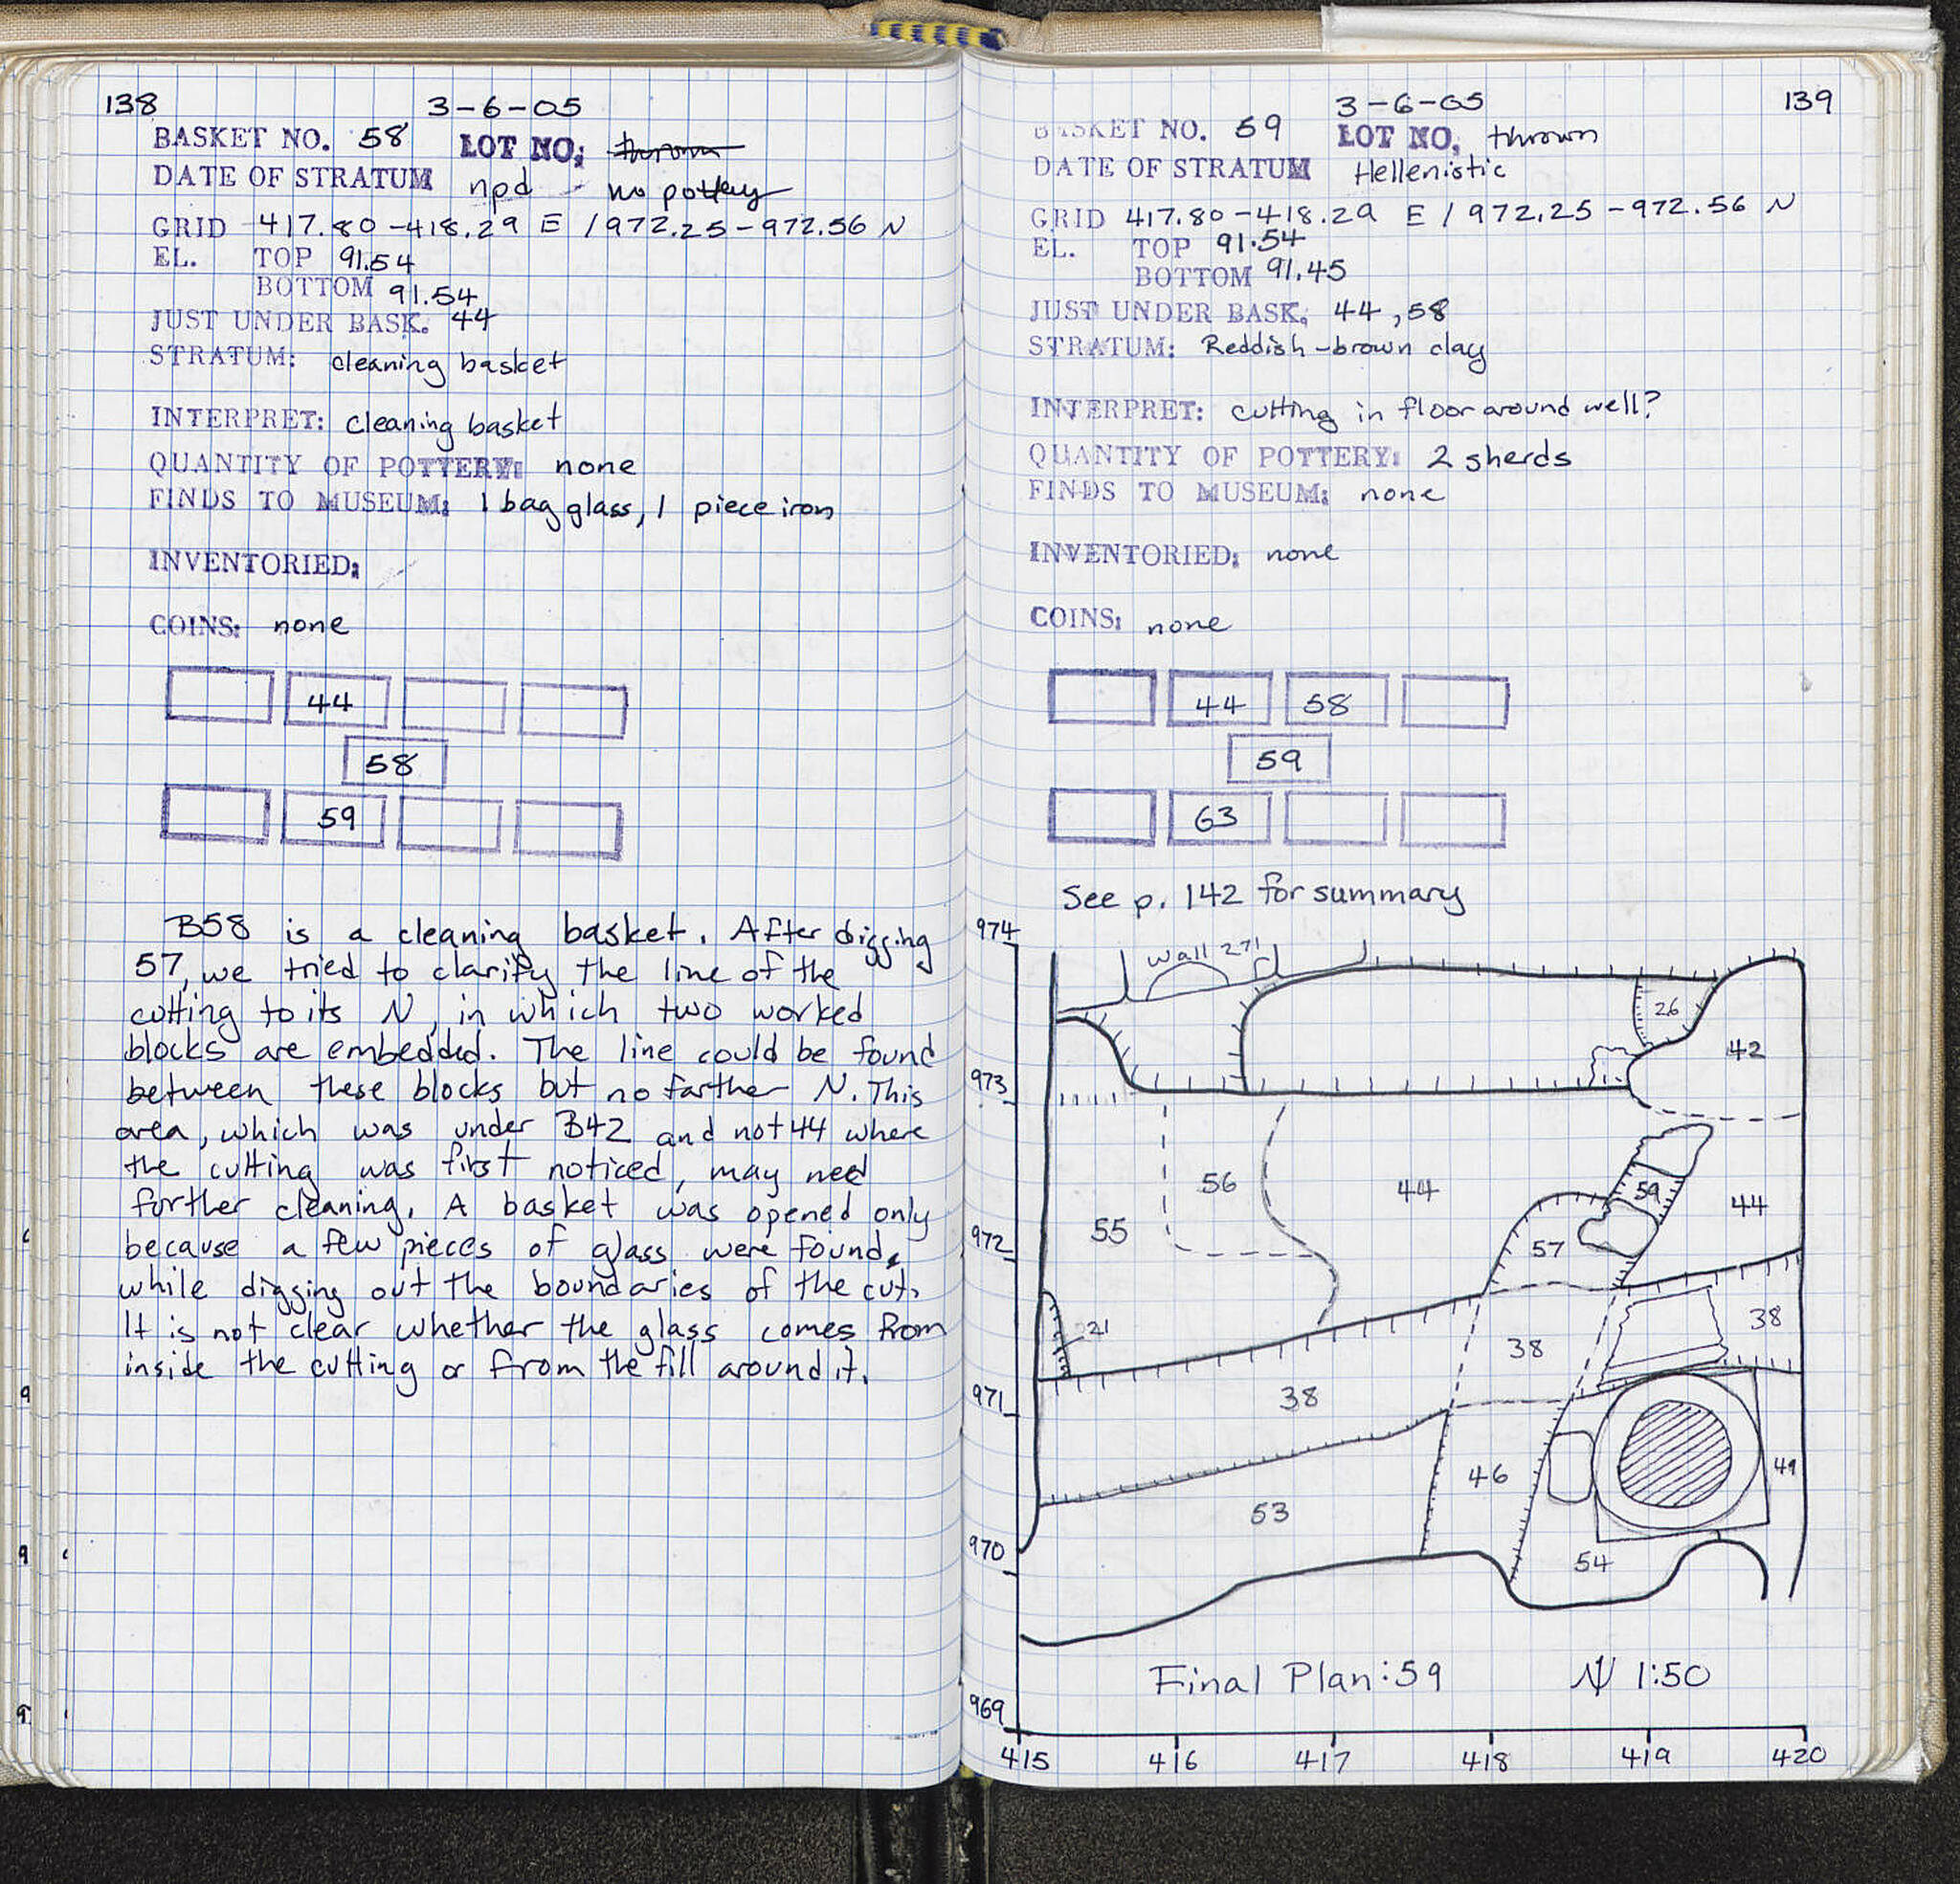 138
3-6-05
BASKET NO. 58 LOT NO: thrown
DATE OF STRATUM npd - no pottery
GRID 417.80-418.29 E / 972.25-972.56 N
EL. TOP 91.54
BOTTOM 91.54
JUST UNDER BASK. 44
STRATUM: cleaning basket
INTERPRET: cleaning basket
QUANTITY OF POTTERY: none
FINDS TO MUSEUM: 1 bag glass, 1 piece iron
INVENTORIED:
COINS: none
44
58
59
B58 is a cleaning basket. After digging
57, we tried to clarify the line of the
cutting to its N, in which two worked
blocks are embedded. The line could be found
between these blocks but no farther N. This
area, which was under B42 and not 44 where
the cutting was first noticed, may need
further cleaning. A basket was opened only
because a few pieces of glass were found
while digging out the boundaries of the cut.
It is not clear whether the glass comes from
inside the cutting or from the fill around it.
3-6-05
139
BASKET NO. 59 LOT NO. thrown
DATE OF STRATUM Hellenistic
GRID 417.80-418.29 E / 972.25-972.56 N
EL. TOP 91.54
BOTTOM 91.45
JUST UNDER BASK. 44, 58
STRATUM: Reddish-brown clay
INTERPRET: cutting in floor around well?
QUANTITY OF POTTERY: 2 sherds
FINDS TO MUSEUM: none
INVENTORIED: none
COINS: none
44 58
59
63
See p. 142 for summary
974
Wall 271
26
42
973
56
44
59
44
55
972
57
21
38
38
971
38
46
49
53
970
54
Final Plan: 59 N 1:50
969
415 416 417 418 419 420